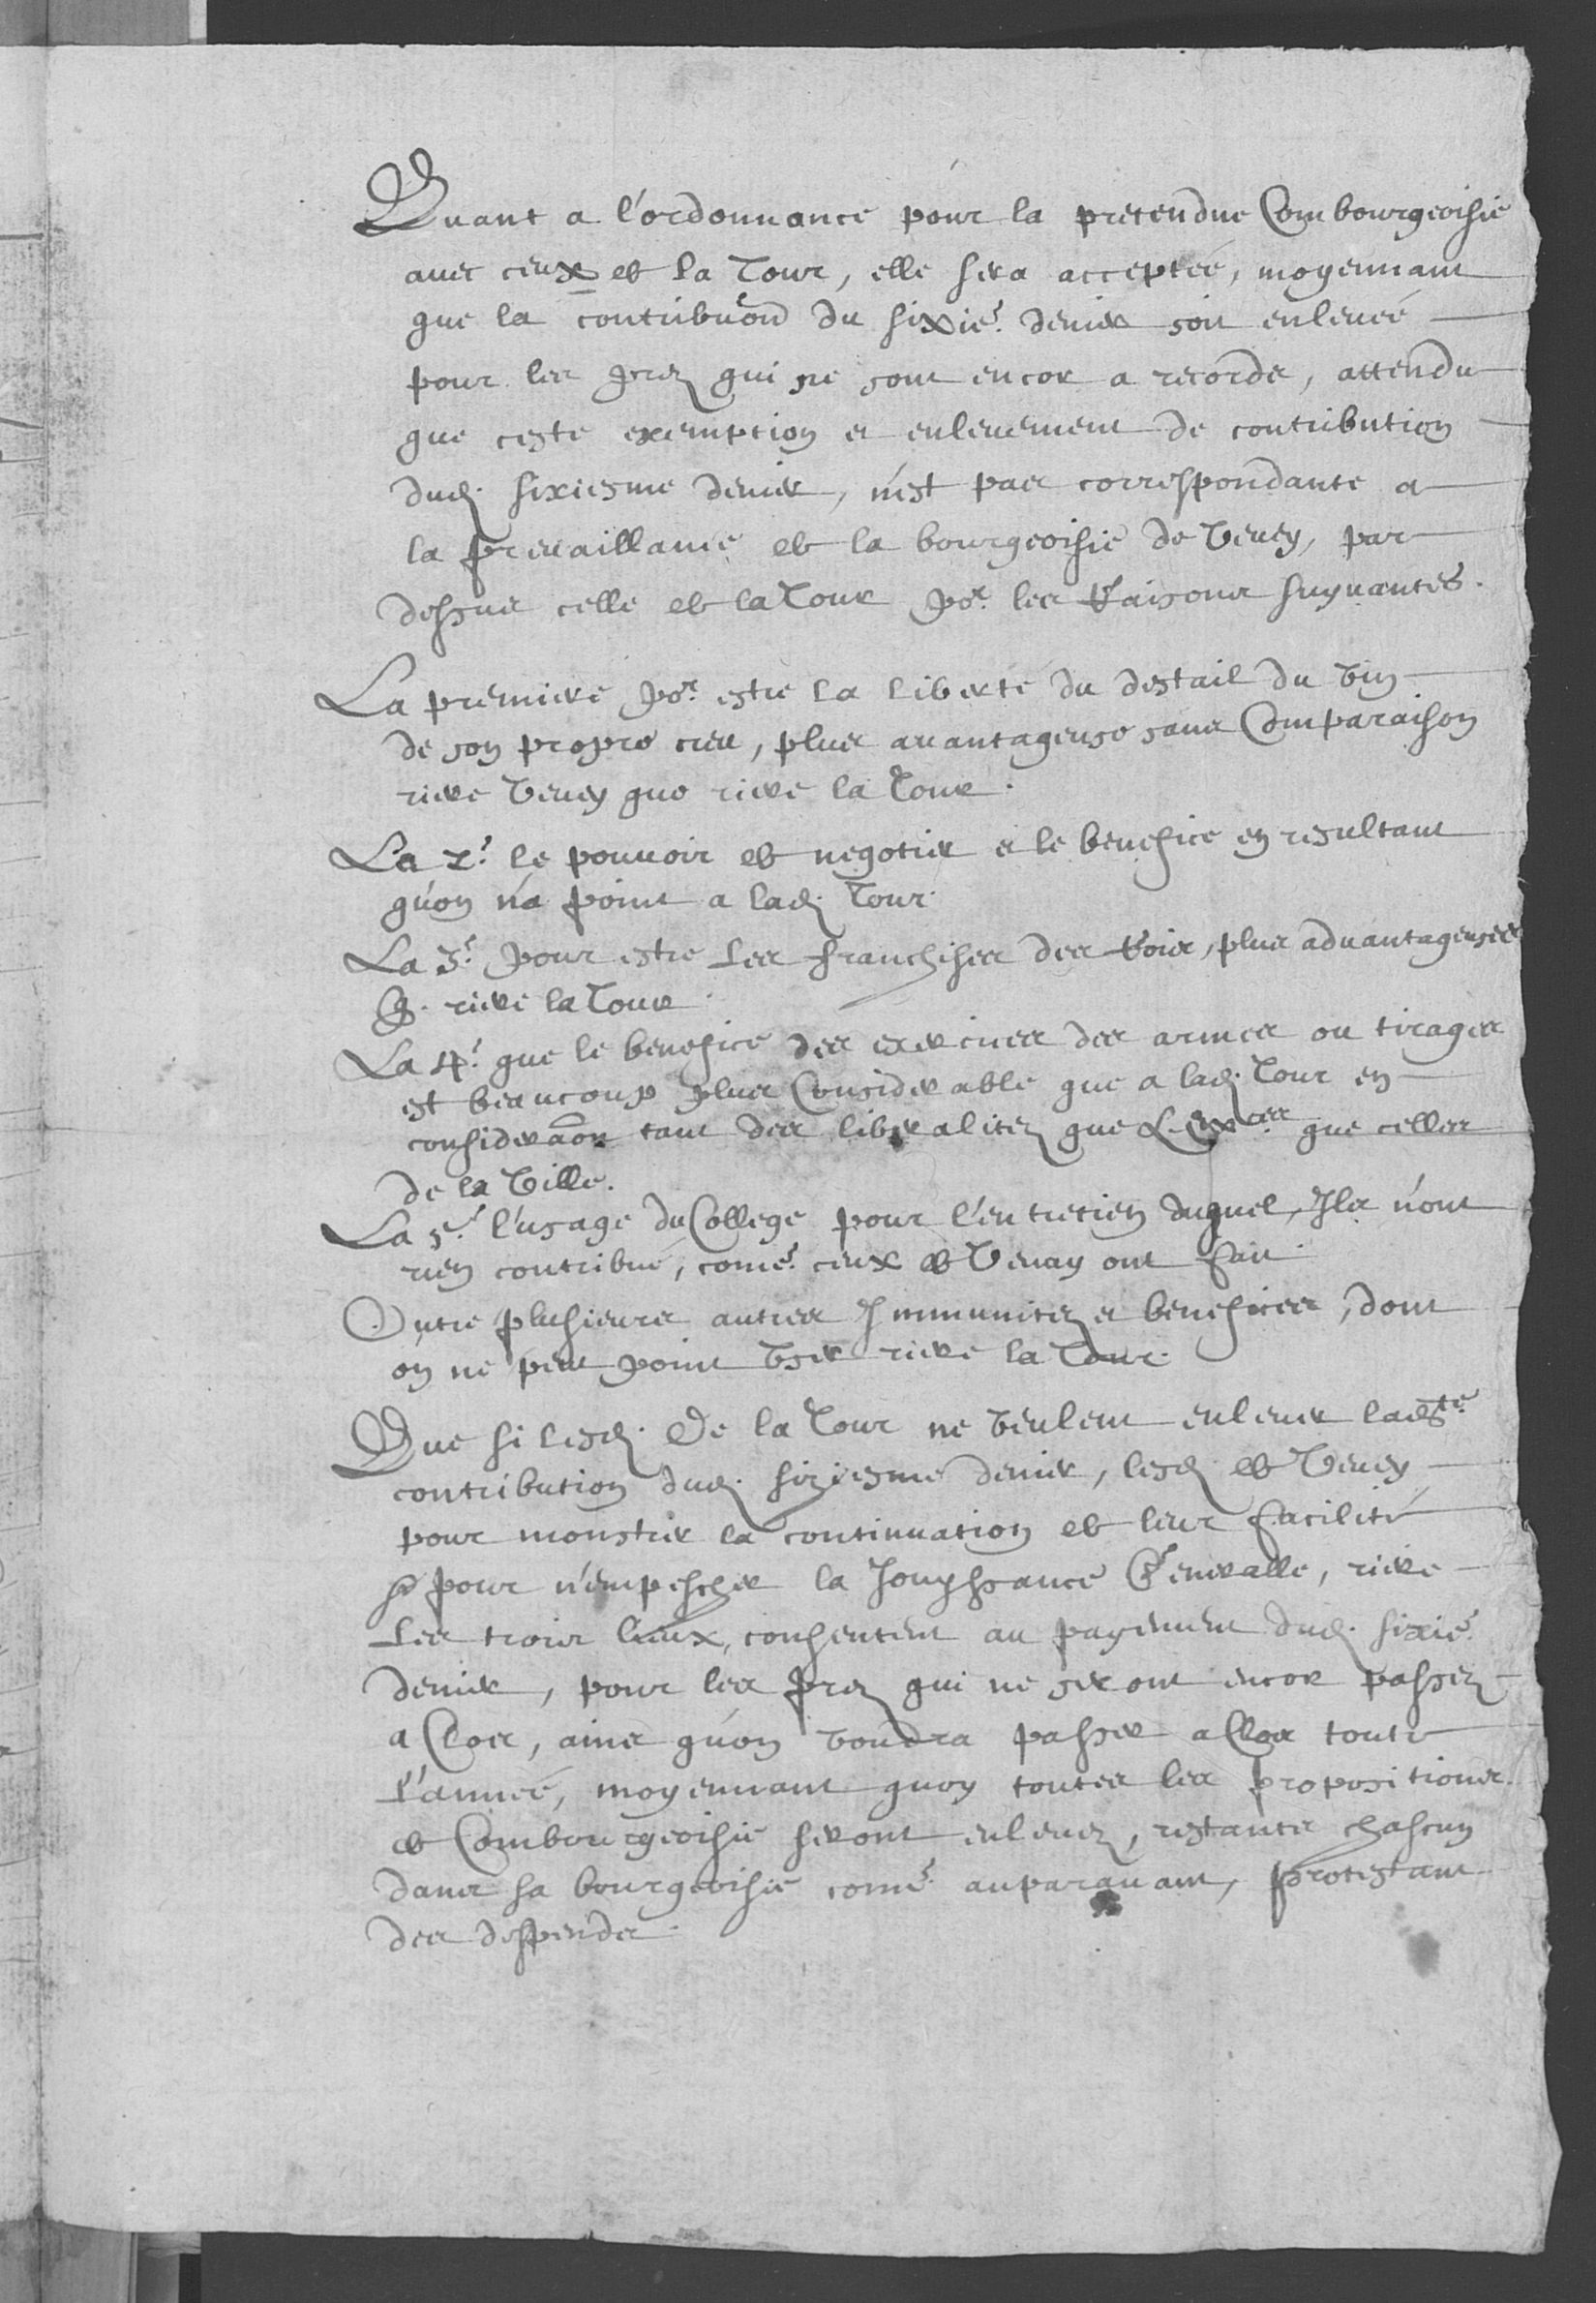 Quant a l'ordonnance pour la pretendue Combourgeoisie
avec ceux de la Tour, elle sera acceptée, moyennant
que la contribuon du sixie. denier soit enlevée
pour les prez qui ne sont encor a recorde, attendu
que ceste exemption et enlevement de contribution
dud. sixiesme denier, n'est pas correspondante a
la prevaillance de la bourgeoisie de Vevey, par
dessus celle de la Tour por. les Raisons suyvantes.
La premiere por. estre la liberté du destail du vin
de son propre creu, plus avantageuse sans Comparaison
riere Vevey que riere la Tour.
La 2e. le pouvoir de negotier et le benefice en resultant
qu'on n'a point a lad. Tour.
La 3e. pour estre les franchises des bois, plus advantageuses
q. riere la Tour.
La 4e. que le benefice des exercices des armes ou tirages
est beaucoup plus Considerable que a lad. Tour en
consideraon tant des liberalitez que L. Exces. que celles
de la Ville.
La 5e. l'usage du College pour l'entretien duquel, Ils n'ont
rien contribué, come. ceux de Vevay ont fait.
Outre plusieurs autres Immunitez et benefices, dont
on ne peut point User riere la Tour.
Que si lesd. De la Tour ne veulent enlever ladste.
contribution dud. sixiesme denier, lesd. de Vevey
pour monstrer la continuation de leur facilité
et pour n'empescher la Jouyssance Generalle, riere
les trois lieux, consentent au payement dud. sixie.
denier, pour les prez qui ne seront encor passez
a Clos, ains qu'on voudra passer a Clos toute
l'année, moyennant quoy toutes les propositions
de Combourgeoisie seront enlevez, restants chascun
dans sa bourgeoisie come. auparavant, protestant
des despends.